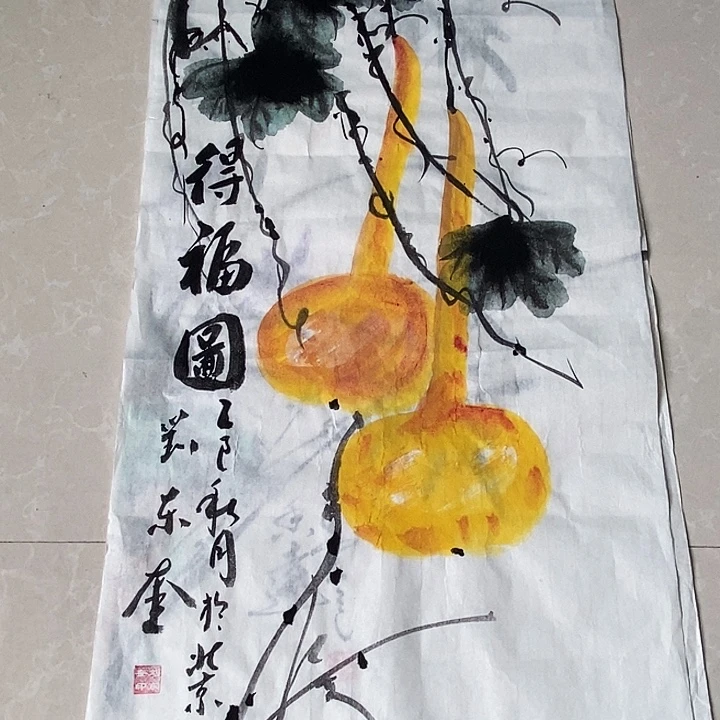 得福圖
乙巳秋月於北京
劉东奎